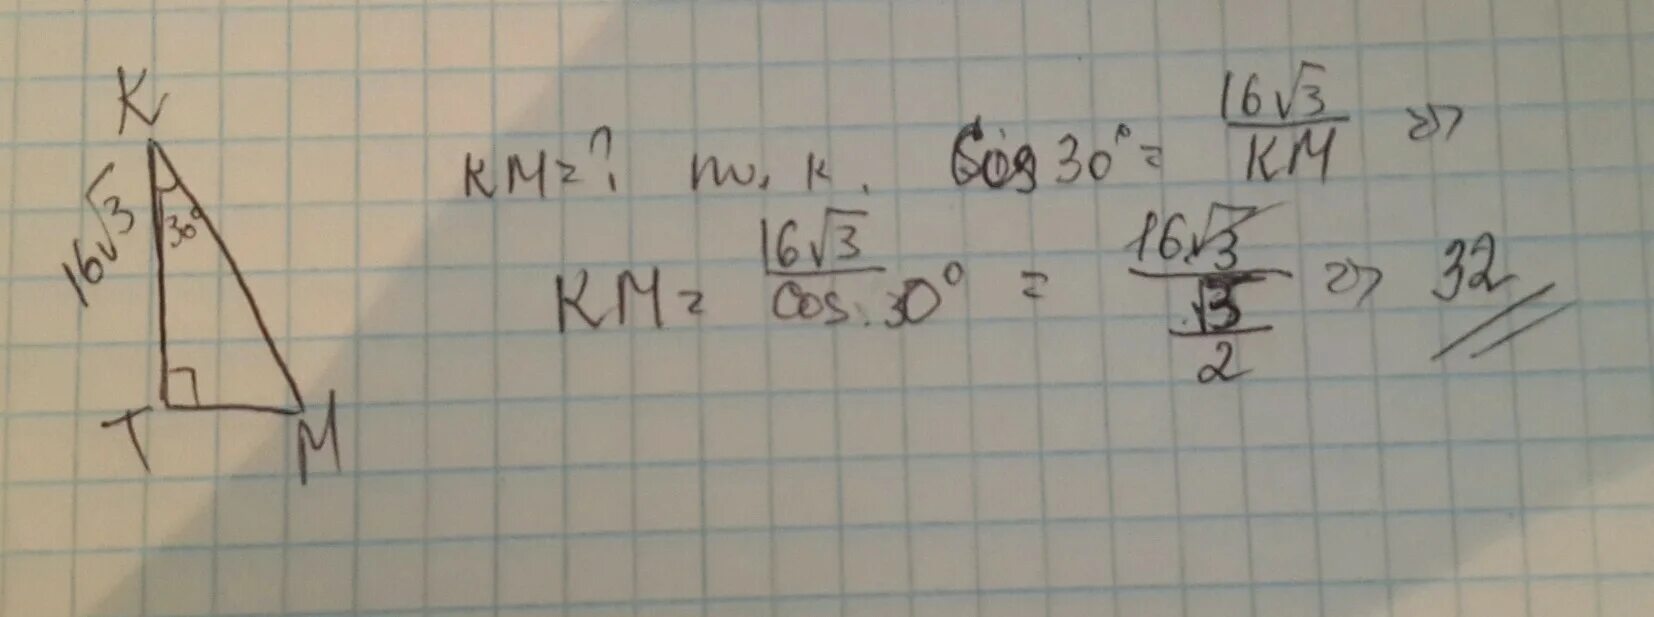 K
16√3
30°
T
M
KM=? т. к. Cos 30° = 16√3/KM =>
KM = 16√3/cos. 30° = 16√3/(√3/2) => 32